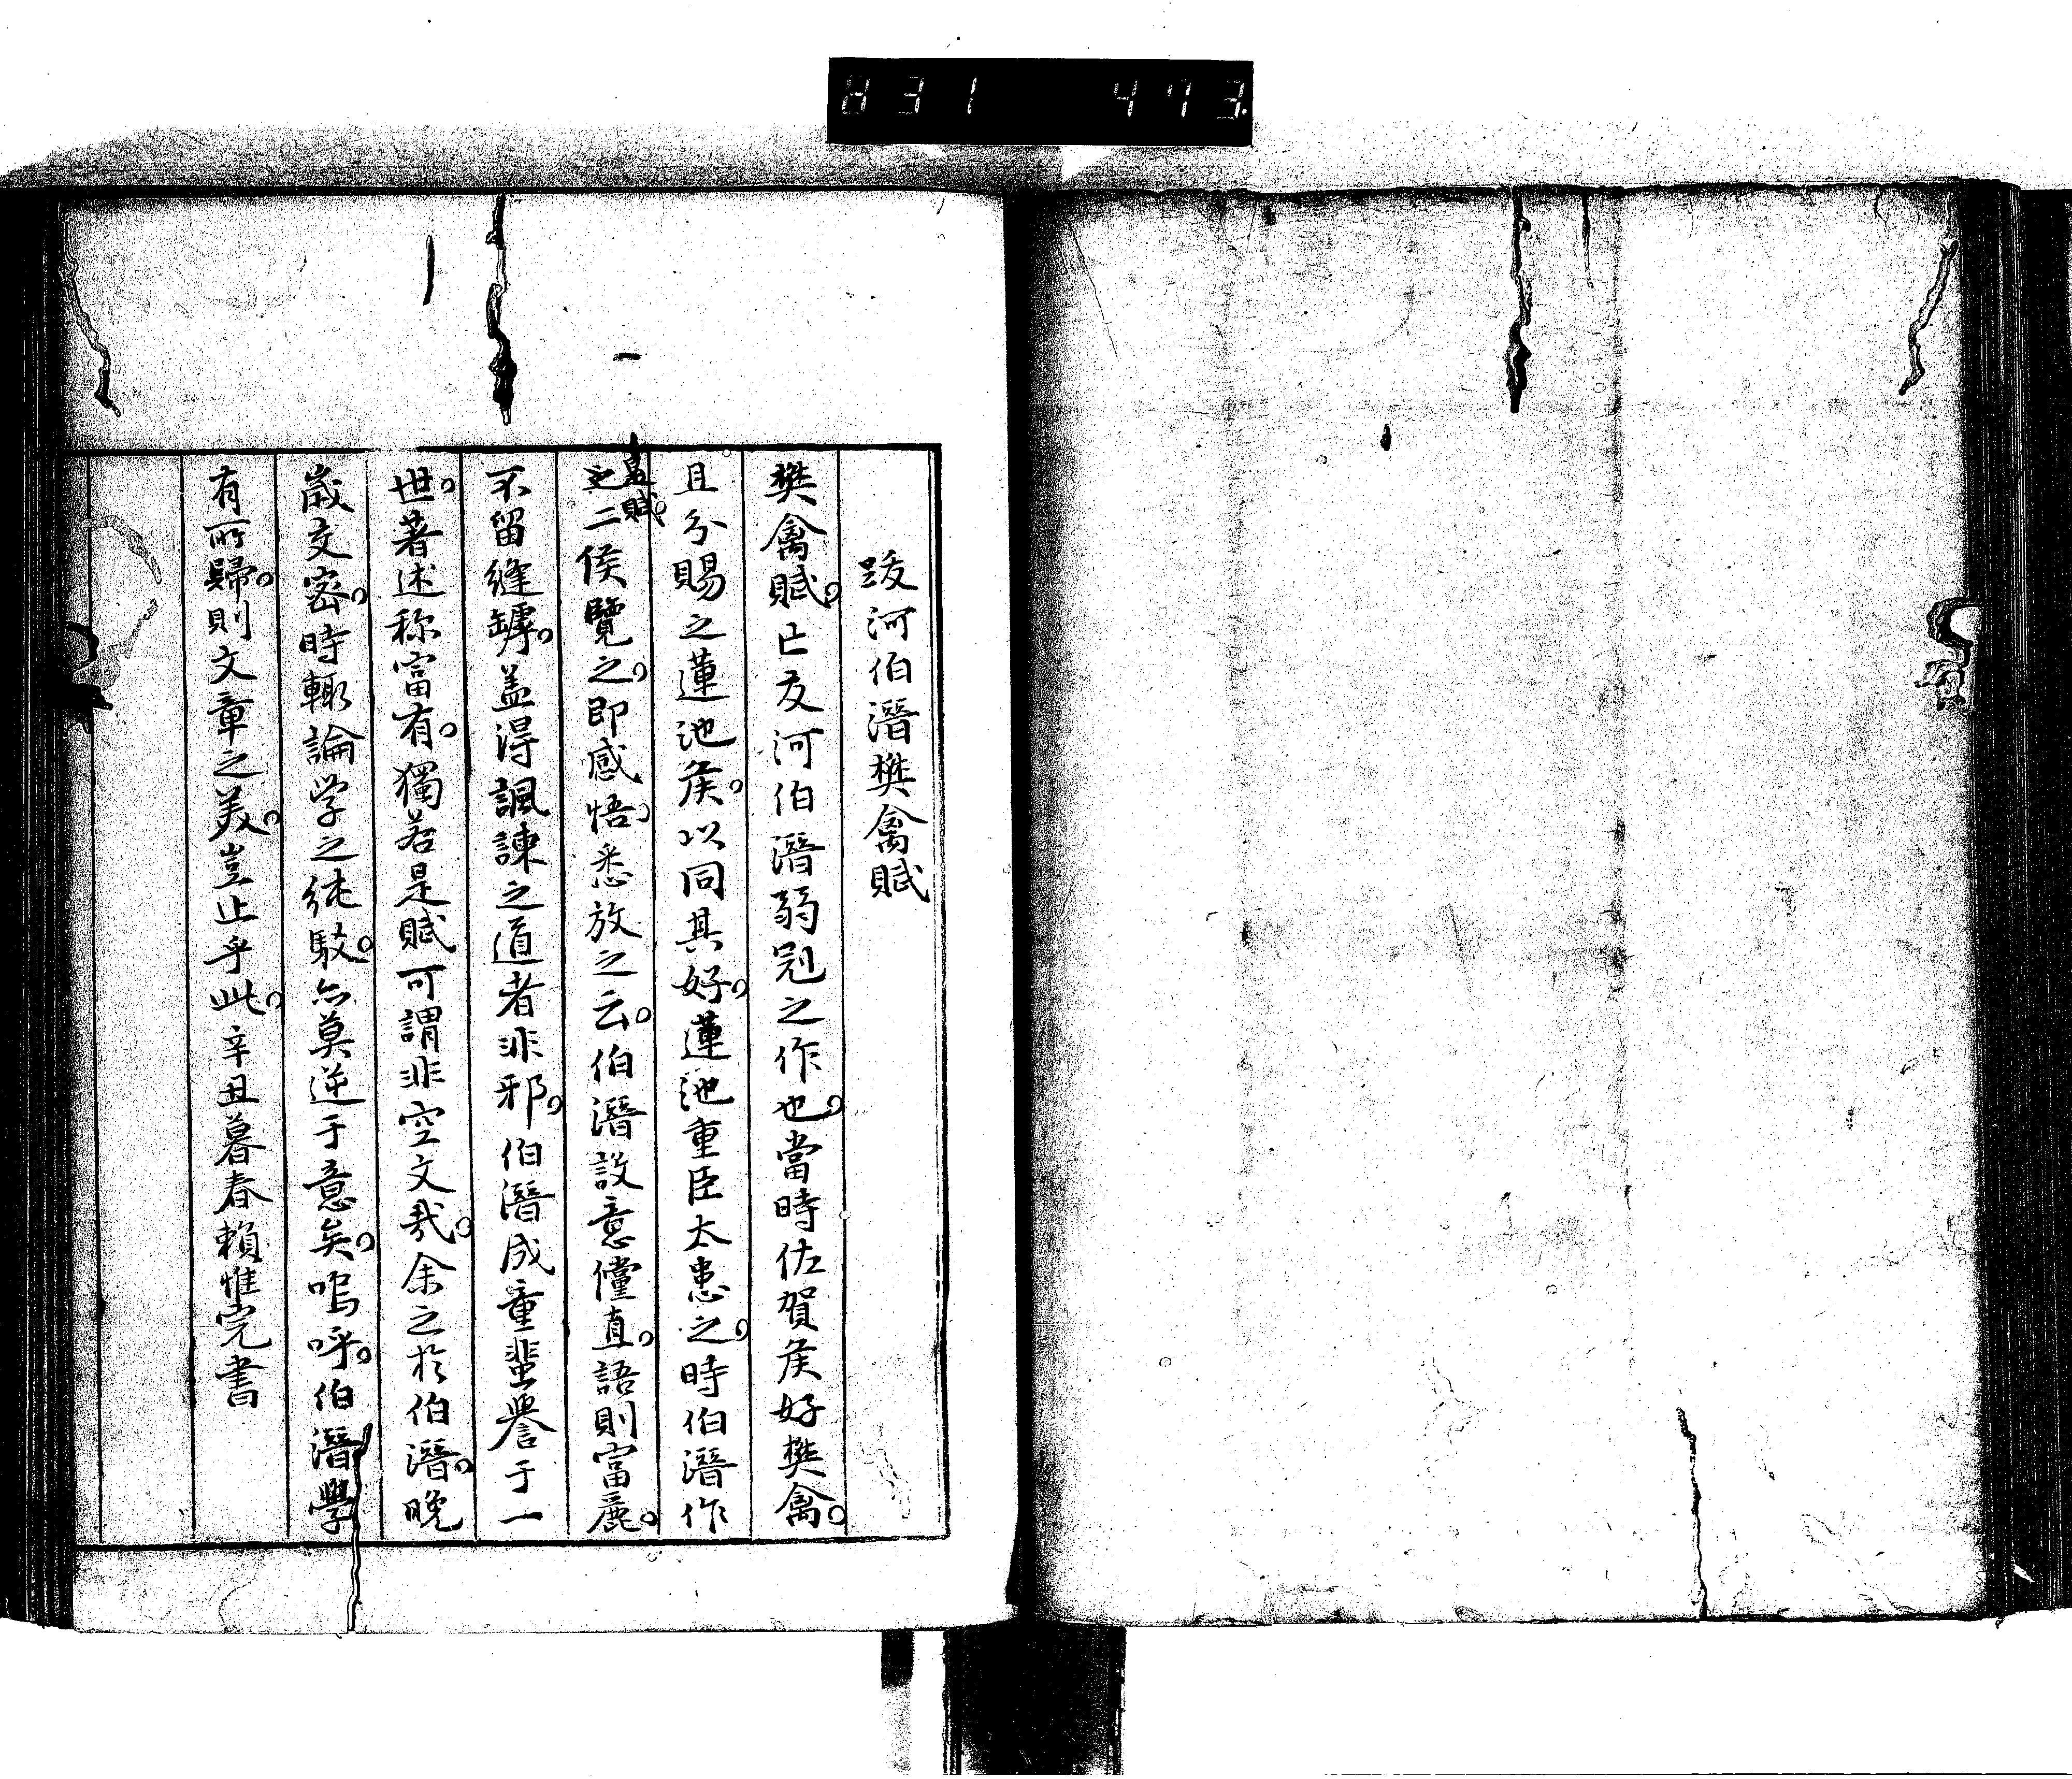 831 473
跋河伯潛樊禽賦
樊禽賦。亡友河伯潛弱冠之作也。當時佐賀侯好樊禽。
且分賜之蓮池侯。以同其好。蓮池重臣太患之。時伯潛作
是賦。
之二侯覽之。即感悟。悉放之云。伯潛設意儻直。語則富麗。
不留縫罅。盖得諷諫之道者非邪。伯潛成童蜚譽于一
世。著述称富有。獨若是賦可謂非空文哉。余之於伯潛。晚
歲交密。時輙論学之純駁。亦莫逆于意矣。嗚呼。伯潛學
有所歸。則文章之美。豈止乎此。辛丑暮春賴惟完書